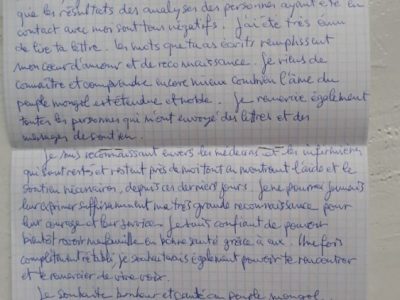 que les résultats des analyses des personnes ayant été en
contact avec moi sont tous négatifs. J'ai été très ému
de lire ta lettre. Les mots que tu as écrits remplissent
mon cœur d'amour et de reconnaissance. Je viens de
connaître et comprendre encore mieux combien l'âme du
peuple mongol est étendue et noble. Je remercie également
toutes les personnes qui m'ont envoyé des lettres et des
messages de soutien.
Je suis reconnaissant envers les médecins et les infirmières
qui sont restés et restent près de moi tout en montrant l'aide et le
soutien nécessaires, depuis ces derniers jours. Je ne pourrai jamais
leur exprimer suffisamment ma très grande reconnaissance pour
leur courage et leur service. Je suis confiant de pouvoir
bientôt revoir ma famille en bonne santé grâce à eux. Une fois
complètement rétabli je souhaiterais également pouvoir te rencontrer
et te remercier de vive voix.
Je souhaite bonheur et santé au peuple mongol